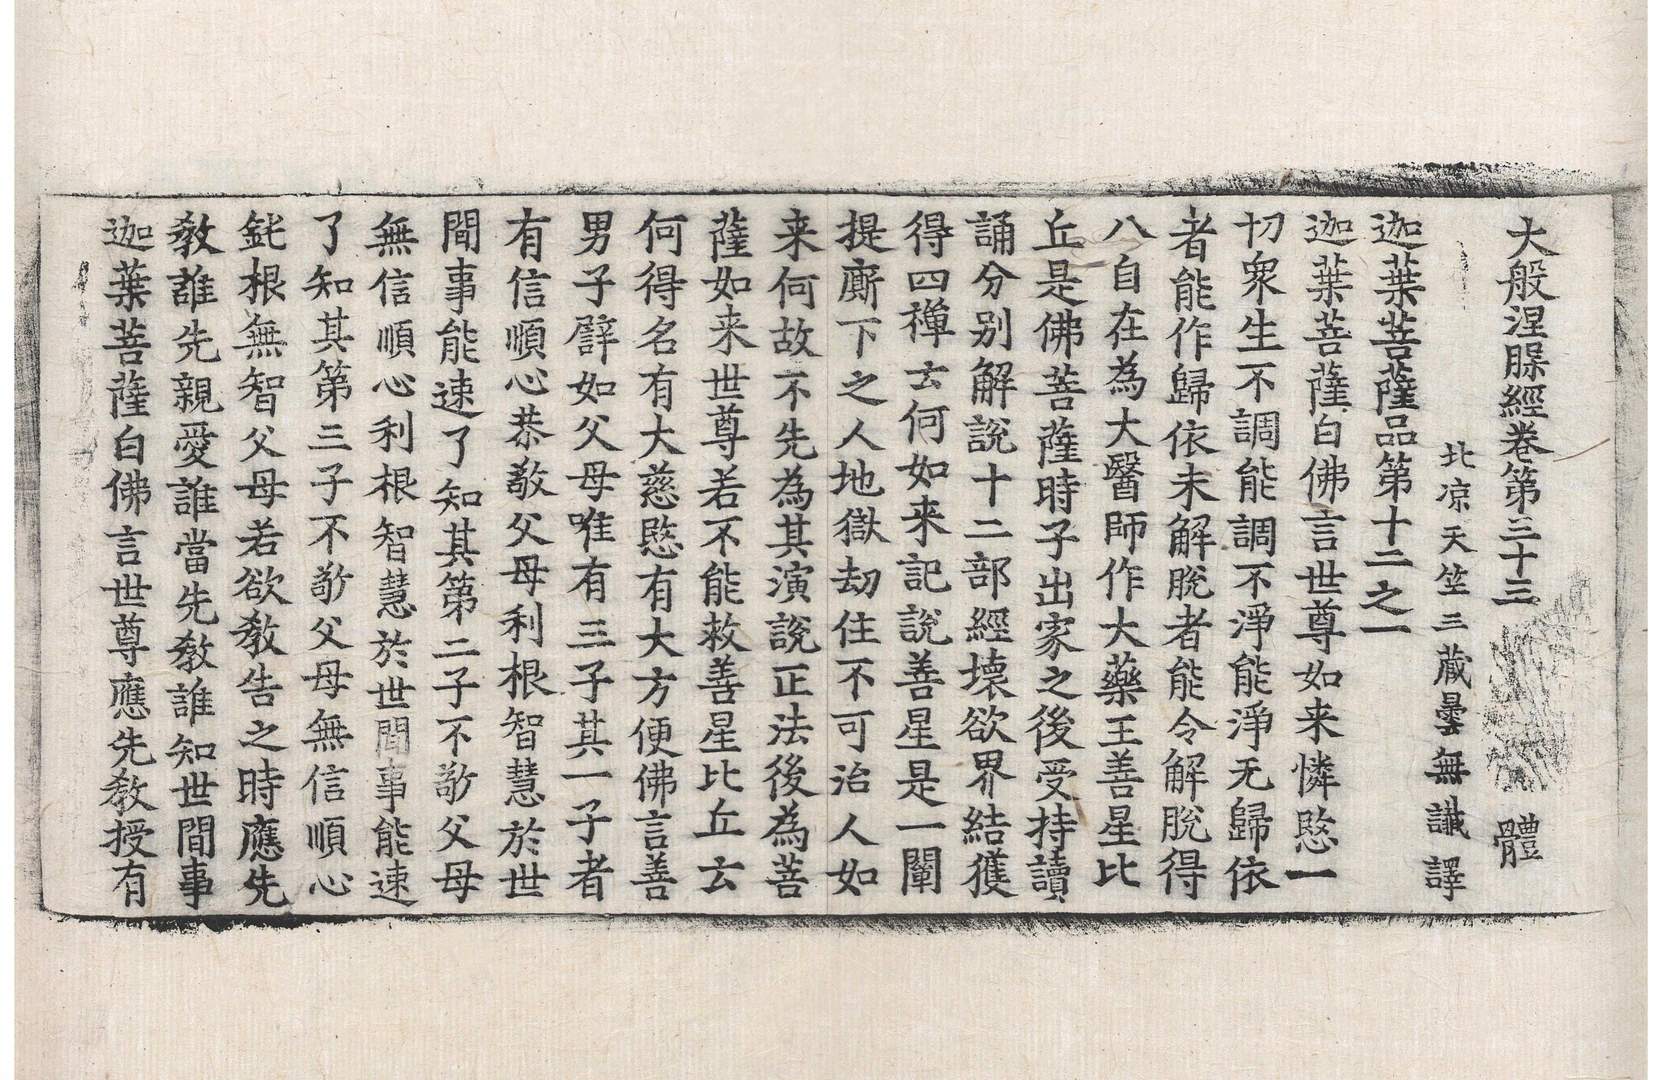 大般涅槃經卷第三十三 體
北凉天竺三蔵曇無讖譯
迦葉菩薩品第十二之一
迦葉菩薩白佛言世尊如来憐愍一
切衆生不調能調不淨能淨无歸依
者能作歸依未解脫者能令解脫得
八自在為大醫師作大藥王善星比
丘是佛菩薩時子出家之後受持讀
誦分别解說十二部經壞欲界結獲
得四禪云何如来記說善星是一闡
提廝下之人地獄劫住不可治人如
来何故不先為其演說正法後為菩
薩如来世尊若不能救善星比丘云
何得名有大慈愍有大方便佛言善
男子譬如父母唯有三子其一子者
有信順心恭敬父母利根智慧於世
間事能速了知其第二子不敬父母
無信順心利根智慧於世間事能速
了知其第三子不敬父母無信順心
鈍根無智父母若欲敎告之時應先
敎誰先親愛誰當先敎誰知世間事
迦葉菩薩白佛言世尊應先敎授有